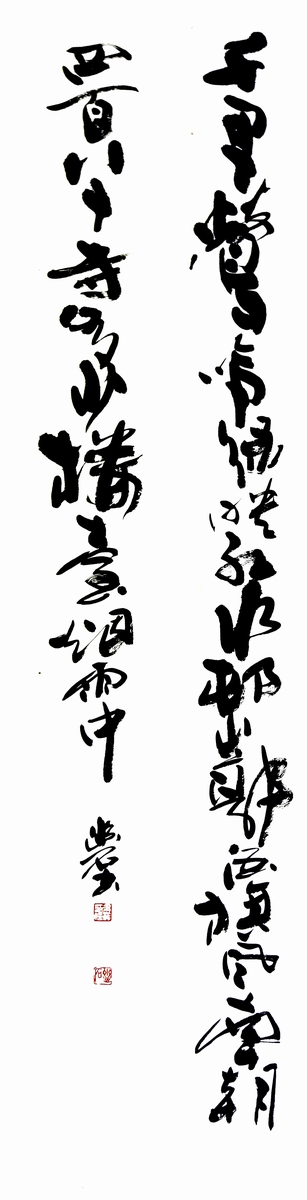 千里鶯啼綠映紅水邨山郭酒旗風南朝
四百八十寺多少樓臺烟雨中